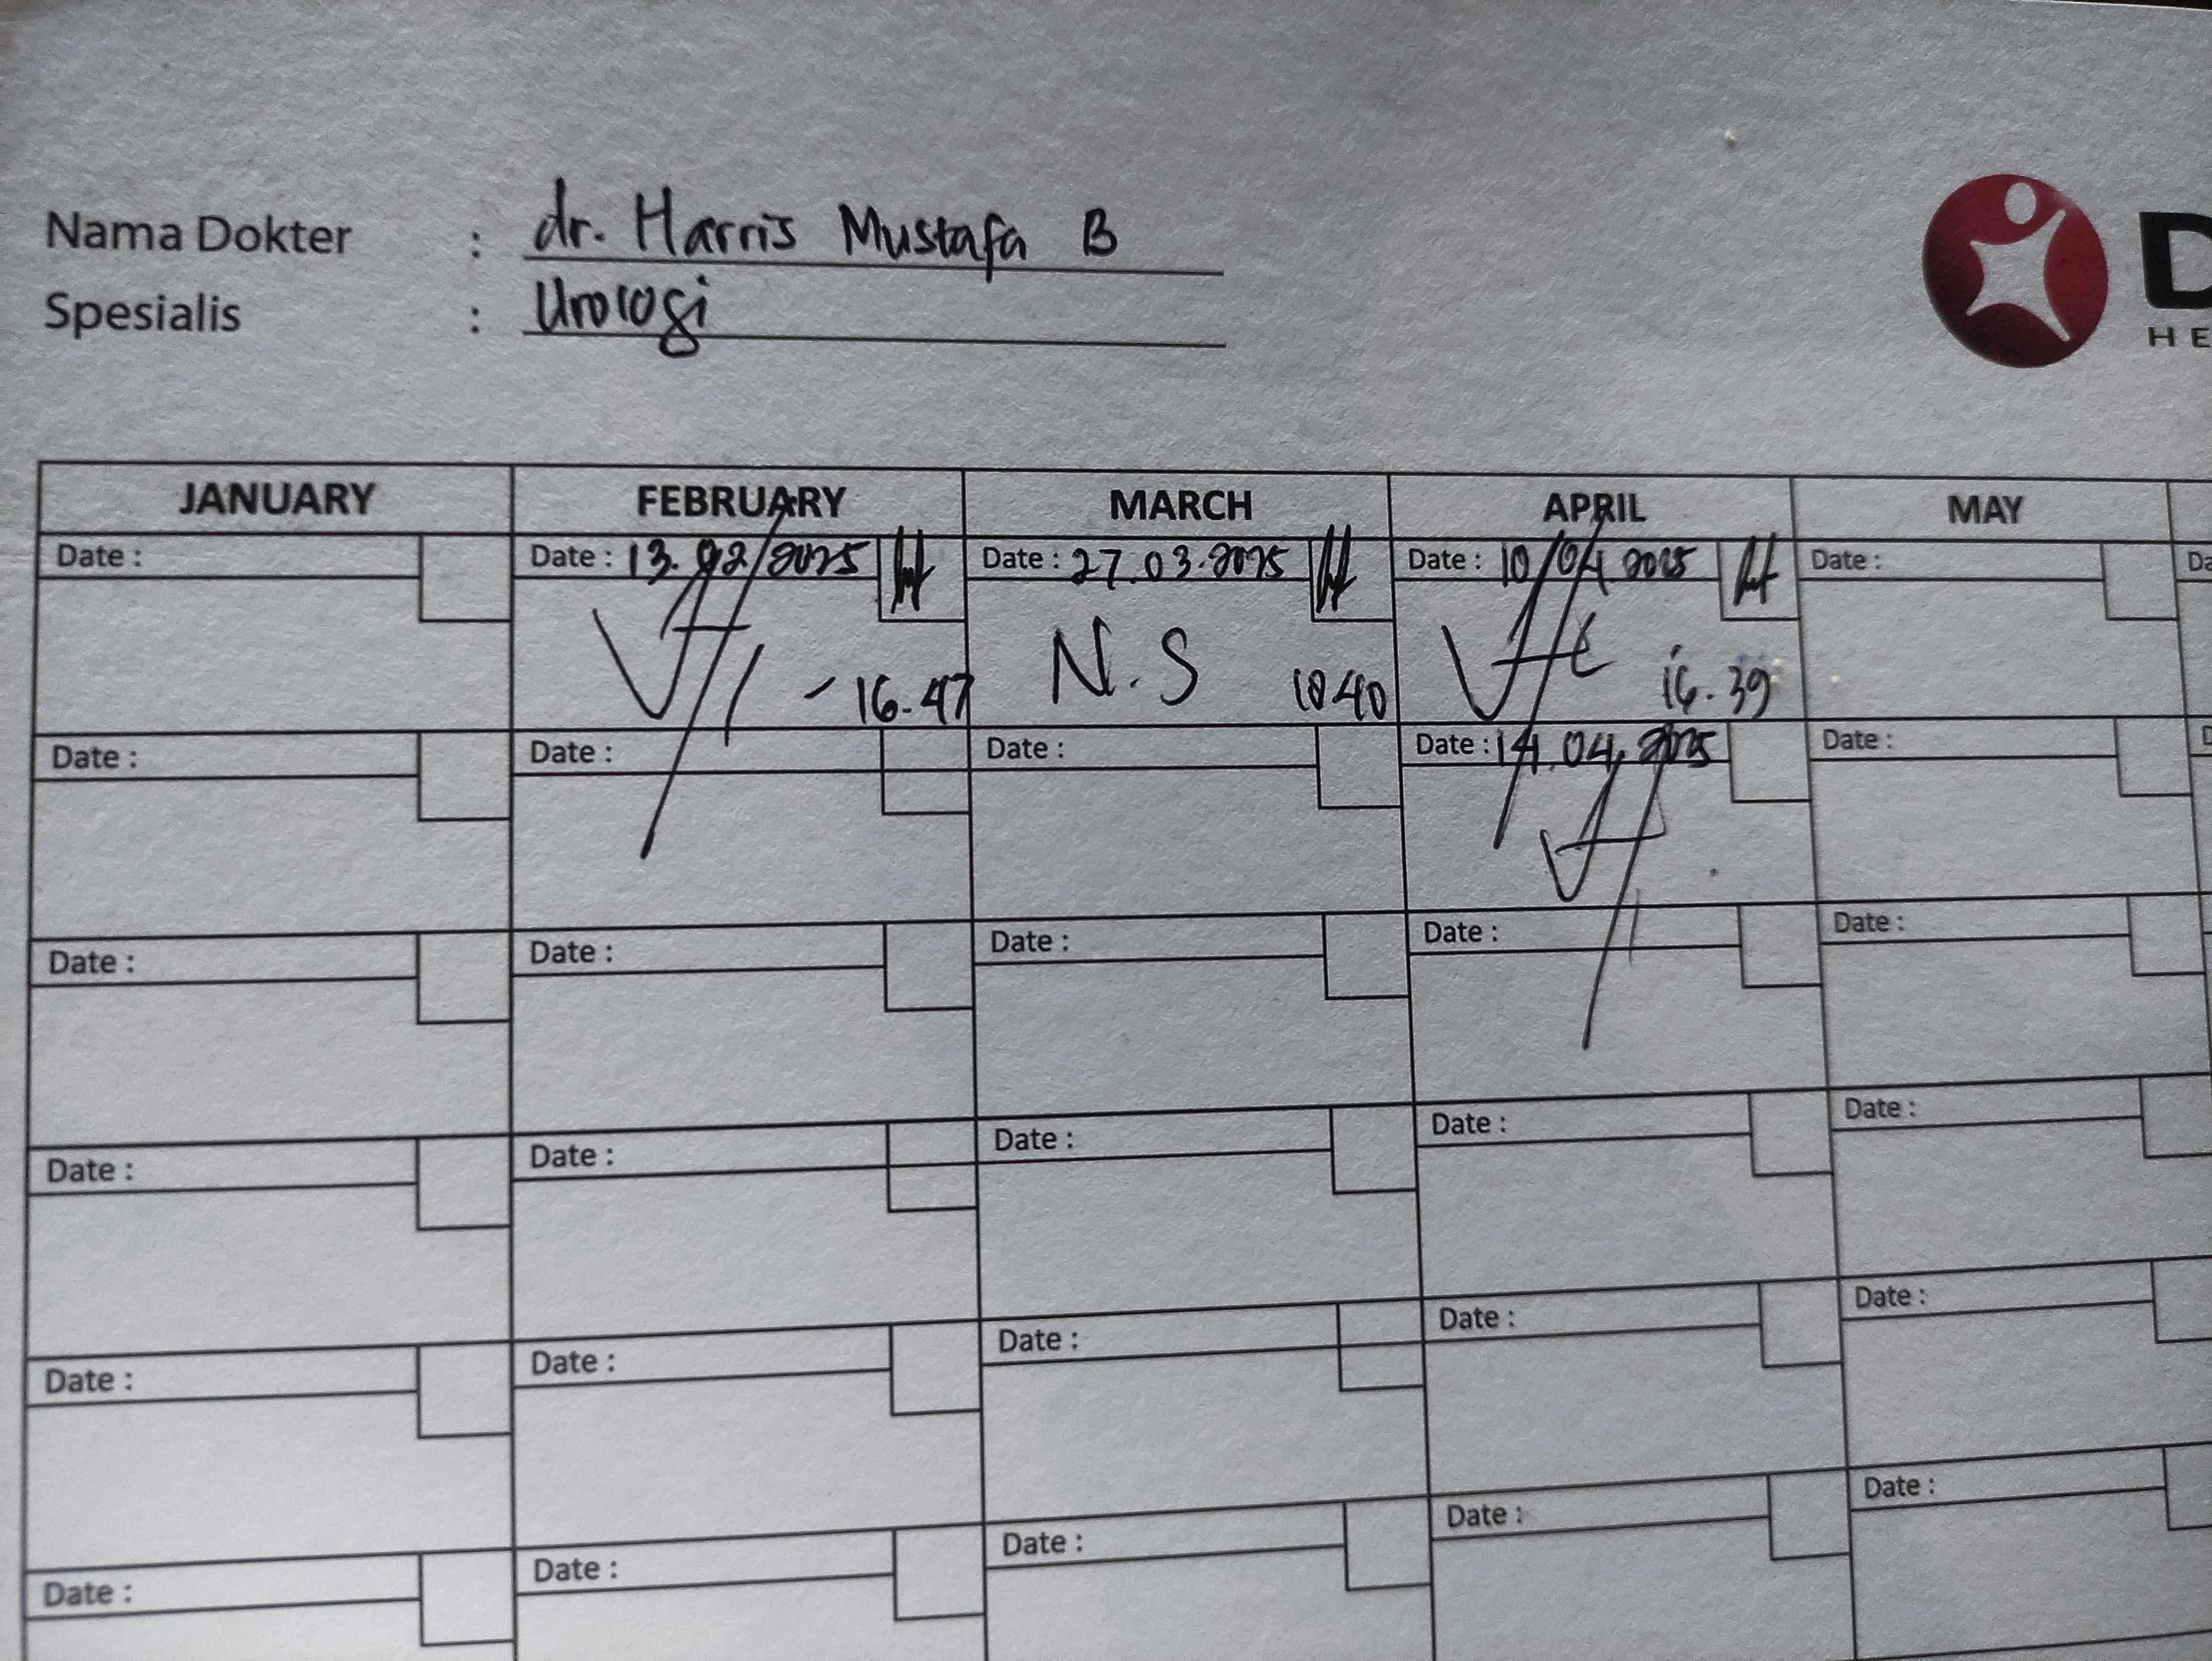 Nama Dokter : dr. Harris Mustafa B
Spesialis : Urologi
D
HE
JANUARY FEBRUARY MARCH APRIL MAY
Date : Date : 13.02/2025 Date : 27.03.2025 Date : 10/04 2025 Date : Da
16.47 N.S 1040 16.39
Date : Date : Date : Date : 14.04.2025 Date : D
Date : Date : Date : Date : Date :
Date : Date : Date : Date : Date :
Date : Date : Date : Date : Date :
Date : Date : Date : Date : Date :